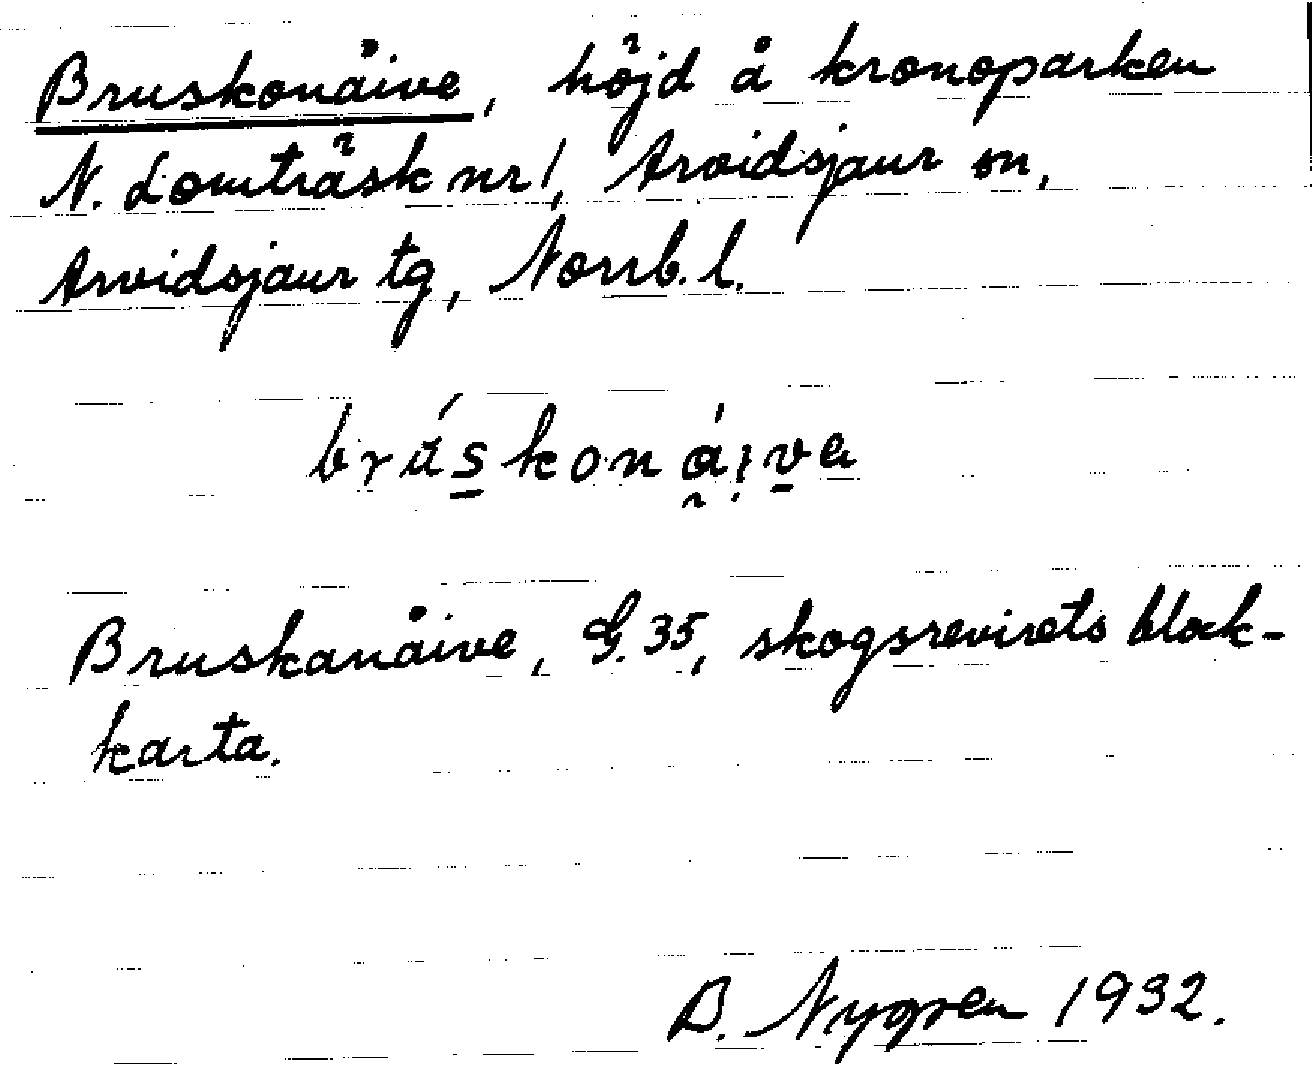 Bruskonåive, höjd å kronoparken
N. Lomträsk nr 1, Arvidsjaur sn,
Arvidsjaur tg, Norrb. l.
brúskonái̯va
Bruskanåive, G. 35, skogsrevirets block-
karta.
B. Nygren 1932.